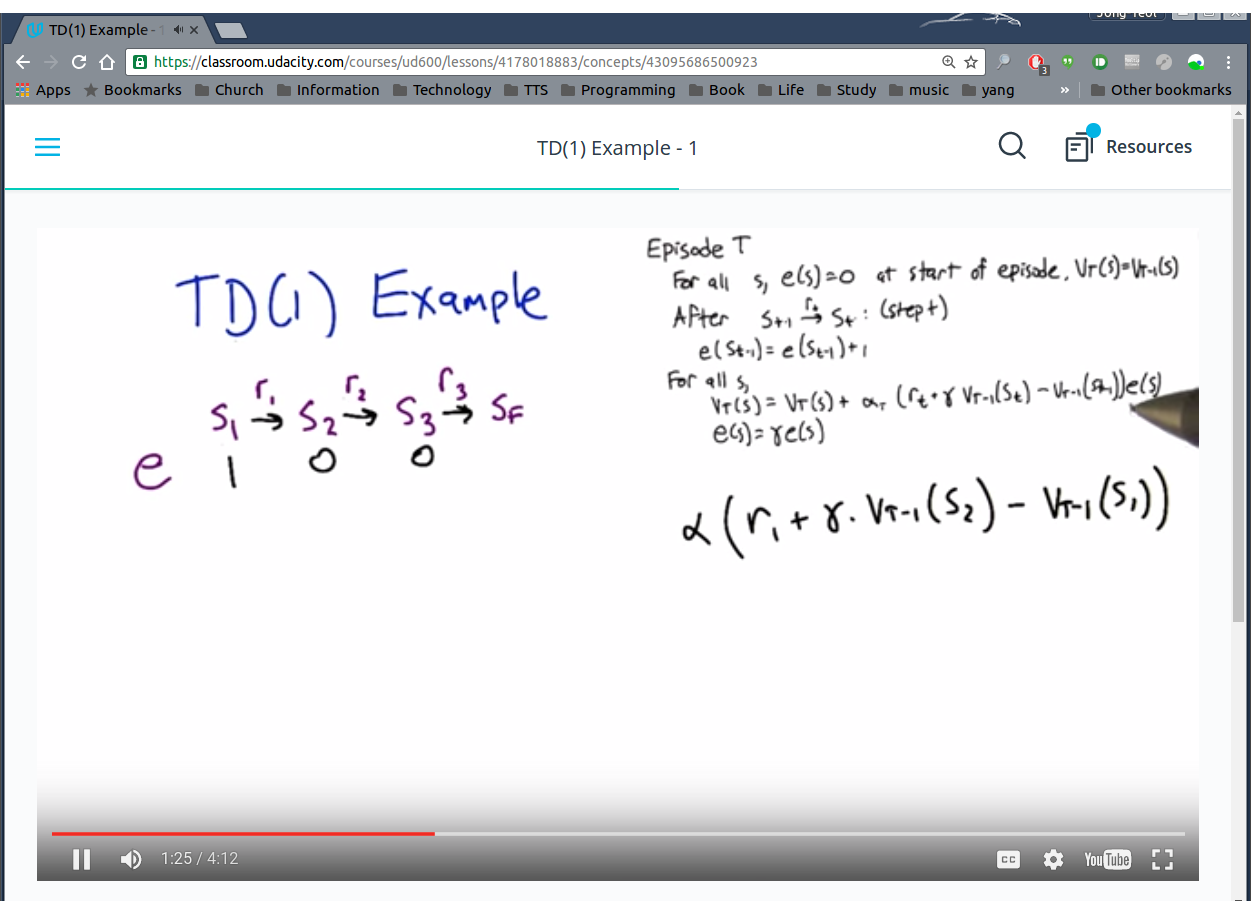 TD(1) Example - 1
Jong Yeol
https://classroom.udacity.com/courses/ud600/lessons/4178018883/concepts/43095686500923
3
Apps Bookmarks Church Information Technology TTS Programming Book Life Study music yang » Other bookmarks
TD(1) Example - 1
Resources
TD(1) Example
Episode T
For all s, e(s)=0 at start of episode, V_T(s)=V_T-1(s)
After S_t-1 →^r_t S_t : (step t)
e(S_t-1) = e(S_t-1)+1
For all s,
V_T(s) = V_T(s) + α_T (r_t + γ V_T-1(S_t) - V_T-1(S_t-1))e(s)
e(s) = γe(s)
r₁ r₂ r₃
S₁ → S₂ → S₃ → S_F
e 1 0 0
α(r₁ + γ. V_T-1(S₂) - V_T-1(S₁))
1:25 / 4:12
CC
YouTube